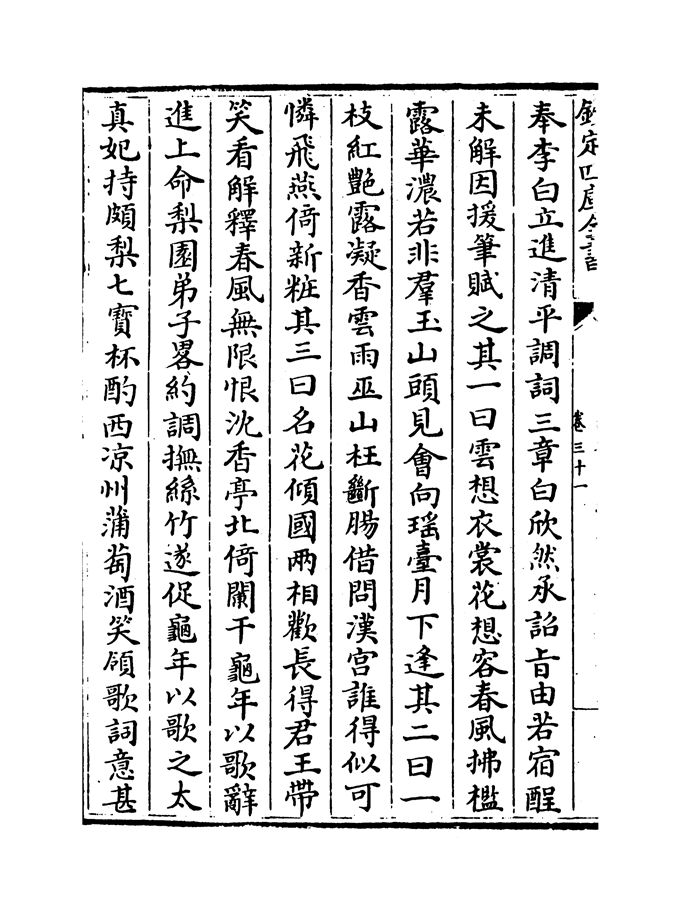 欽定四庫全書
卷三十一
奉李白立進清平調詞三章白欣然承詔旨由若宿酲
未解因援筆賦之其一曰雲想衣裳花想容春風拂檻
露華濃若非羣玉山頭見㑹向瑶臺月下逢其二曰一
枝紅艶露凝香雲雨巫山枉斷腸借問漢宫誰得似可
憐飛燕倚新粧其三曰名花傾國兩相歡長得君王帶
笑看解釋春風無限恨沈香亭北倚闌干龜年以歌辭
進上命梨園弟子畧約調撫絲竹遂促龜年以歌之太
真妃持頗梨七寳杯酌西凉州蒲萄酒笑領歌詞意甚